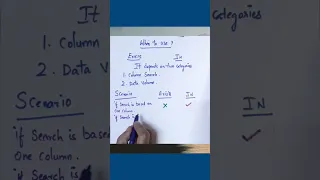 When to use?
Exists In
It depends on two categories
1. Column Search
2. Data Volume.
Scenario Exists IN
if Search is based on × ✓
one column
if Search
categories
1. Column
2. Data
Scenario
if Search is
one column
In
IN
✓